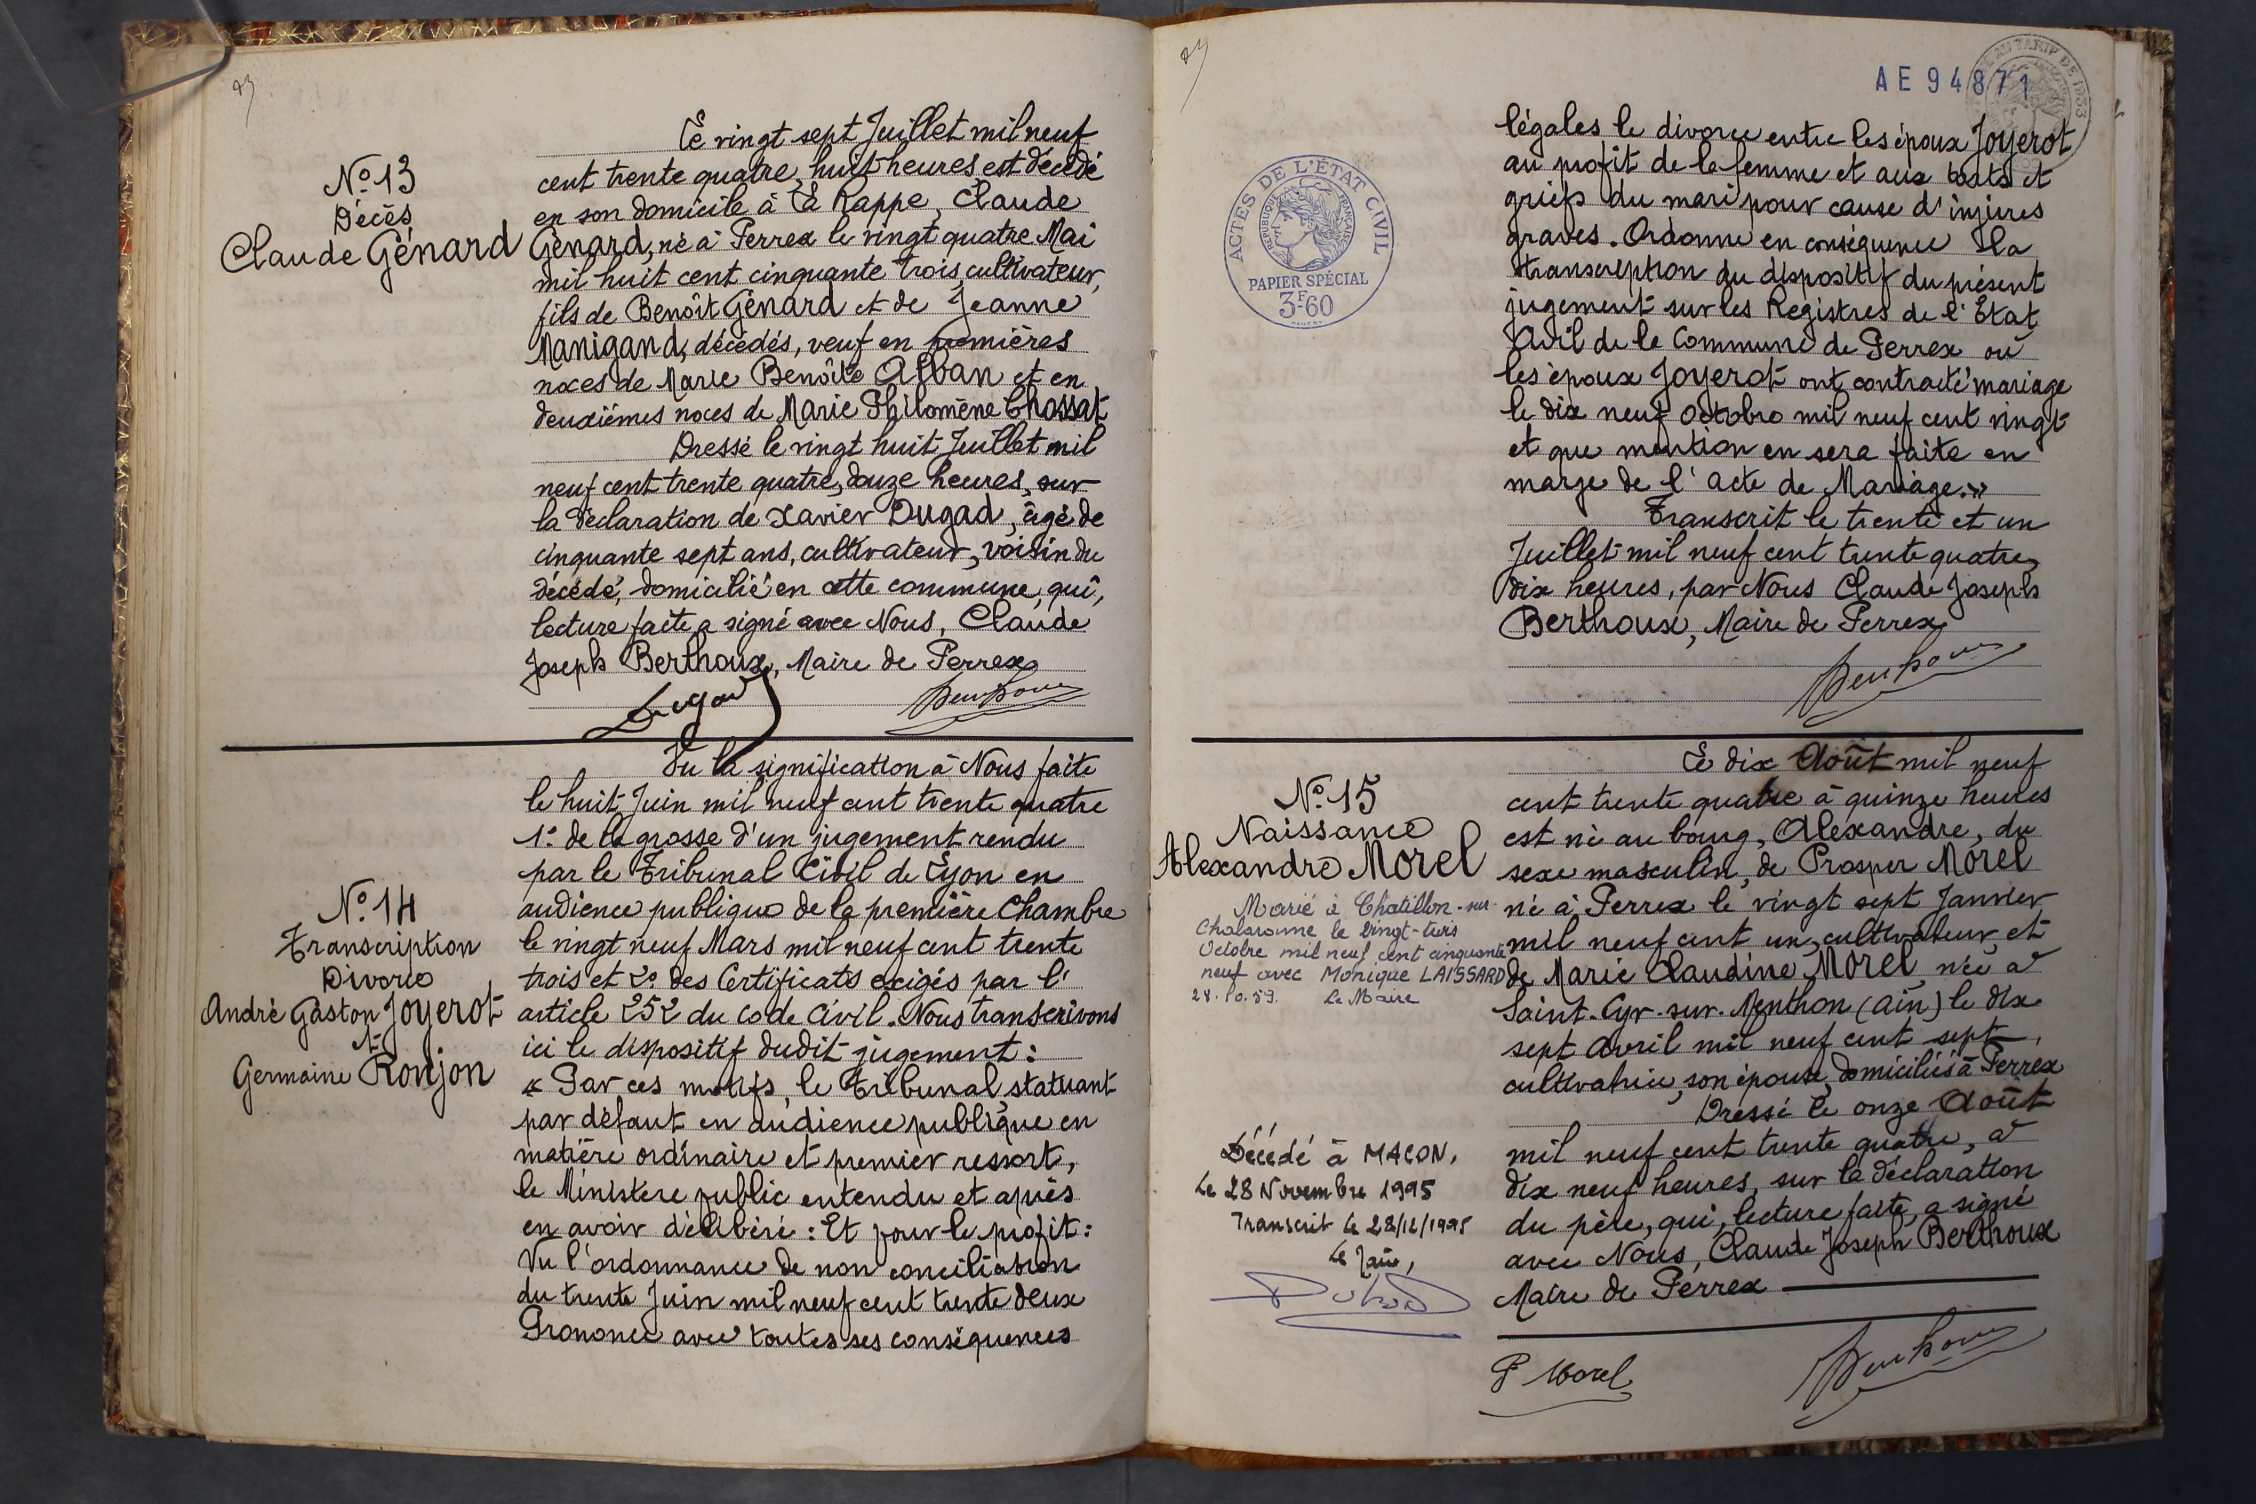 N° 13
Décès
Claude Génard
Le vingt sept Juillet mil neuf
cent trente quatre, huit heures, est décédé
en son domicile à La Rappe, Claude
Génard, né à Perrex le vingt quatre Mai
mil huit cent cinquante trois, cultivateur,
fils de Benoît Génard et de Jeanne
Manigand, décédés, veuf en premières
noces de Marie Benoîte Alban et en
deuxièmes noces de Marie Philomène Chossat
Dressé le vingt huit Juillet mil
neuf cent trente quatre, douze heures, sur
la déclaration de Xavier Dugad, âgé de
cinquante sept ans, cultivateur, voisin du
décédé, domicilié en cette commune, qui,
lecture faite a signé avec Nous, Claude
Joseph Berthoux, Maire de Perrex
Dugad
Berthoux
N° 14
Transcription
Divorce
André Gaston Joyerot
et
Germaine Ronjon
Vu la signification à Nous faite
le huit Juin mil neuf cent trente quatre
1° de la grosse d'un jugement rendu
par le Tribunal Civil de Lyon en
audience publique de la première Chambre
le vingt neuf Mars mil neuf cent trente
trois et 2° des Certificats exigés par l'
article 252 du Code Civil. Nous transcrivons
ici le dispositif dudit jugement :
« Par ces motifs, le Tribunal, statuant
par défaut en audience publique en
matière ordinaire et premier ressort,
le Ministère public entendu et après
en avoir délibéré : Et pour le profit :
Vu l'ordonnance de non conciliation
du trente Juin mil neuf cent trente deux
Prononce avec toutes ses conséquences
AE 94871
ACTES DE L'ÉTAT CIVIL
RÉPUBLIQUE FRANÇAISE
PAPIER SPÉCIAL
3F60
légales le divorce entre les époux Joyerot
au profit de la femme et aux torts et
griefs du mari pour cause d'injures
graves. Ordonne en conséquence la
transcription du dispositif du présent
jugement sur les Registres de l'Etat
Civil de la Commune de Perrex où
les époux Joyerot ont contracté mariage
le dix neuf Octobre mil neuf cent vingt
et que mention en sera faite en
marge de l'acte de Mariage. »
Transcrit le trente et un
Juillet mil neuf cent trente quatre,
dix heures, par Nous Claude Joseph
Berthoux, Maire de Perrex
Berthoux
N° 15
Naissance
Alexandre Morel
Marié à Chatillon-sur-
Chalaronne le vingt-trois
Octobre mil neuf cent cinquante
neuf avec Monique LAISSARD
28.10.59. Le Maire
Décédé à MACON,
Le 28 Novembre 1995
Transcrit le 28/12/1995
Le Maire,
Le dix Août mil neuf
cent trente quatre à quinze heures
est né au bourg, Alexandre, du
sexe masculin, de Prosper Morel
né à Perrex le vingt sept Janvier
mil neuf cent un, cultivateur, et
de Marie Claudine Morel, née à
Saint-Cyr-sur-Menthon (Ain) le dix
sept Avril mil neuf cent sept,
cultivatrice, son épouse, domiciliés à Perrex
Dressé le onze Août
mil neuf cent trente quatre, à
dix neuf heures, sur la déclaration
du père, qui, lecture faite, a signé
avec Nous, Claude Joseph Berthoux
Maire de Perrex
P Morel
Berthoux